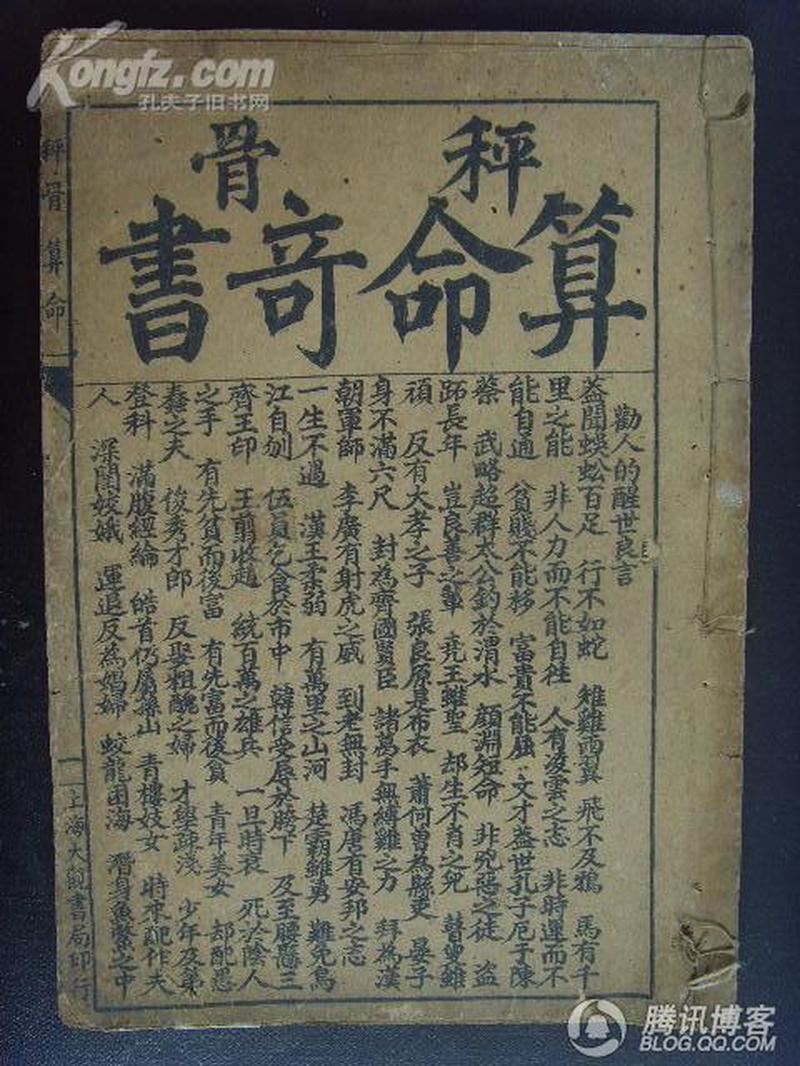 Kongfz.com
孔夫子旧书网
秤骨
算命竒書
勸人的醒世良言
益聞蜈蚣百足 行不如蛇 雉雞両翼 飛不及鴉 馬有千
里之能 非人力而不能自往 人有凌雲之志 非時運而不
能自通 貧賤不能移 富貴不能屈 文才益世孔子厄于陳
蔡 武略超群太公釣於渭水 顏淵短命 非兇惡之徒 盜
跖長年 豈良善之輩 堯王雖聖 却生不肖之兒 瞽叟雖
頑 反有大孝之子 張良原是布衣 蕭何曾為縣吏 晏子
身不滿六尺 封為齊國賢臣 諸萬手無縛雞之力 拜為漢
朝軍師 李廣有射虎之威 到老無封 馮唐有安邦之志
一生不遇 漢王柔弱 有萬里之山河 楚霸雖勇 難免烏
江自刎 伍員乞食於市中 韓信受辱於胯下 及至腰懸三
齊王印 王翦收趙 統百萬之雄兵 一旦時衰 死於陰人
之手 有先貧而後富 有先富而後貧 青年美女 却配愚
蠢之夫 俊秀才郎 反娶粗醜之婦 才學疎淺 少年及第
登科 滿腹經綸 皓首仍屬孫山 青樓妓女 時來配作夫
人 深閨姣娥 運退反為娼婦 蛟龍困海 潛身魚鱉之中
秤骨算命
一 上海大觀書局印行
腾讯博客
BLOG.QQ.COM